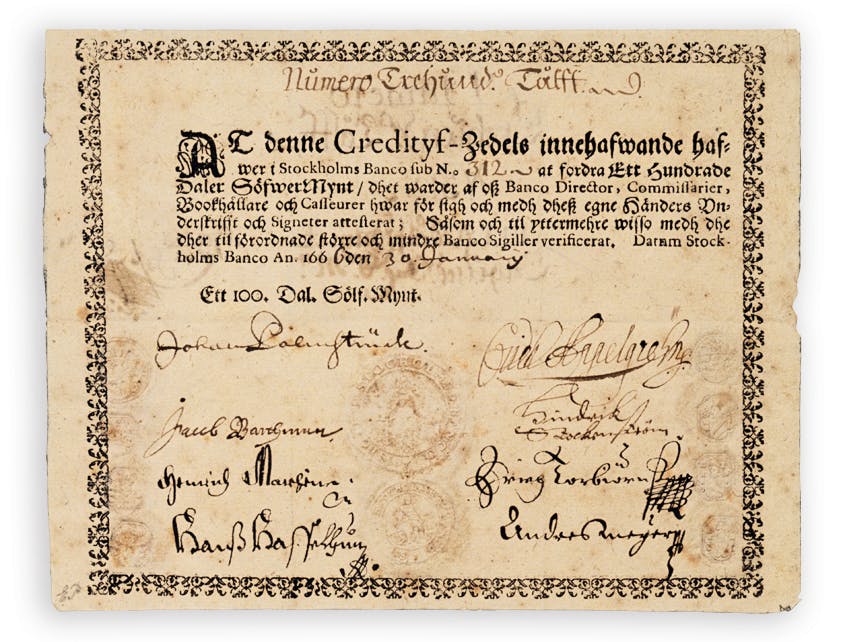 Numero Trehund. Tålff
AT denne Credityf-Zedels innehafwande haf-
wer i Stockholms Banco sub N.o 312 at fordra Ett Hundrade
Daler SölfwerMynt / dhet warder af oß Banco Director, Commissarier,
Bookhållare och Casseurer hwar för sigh och medh dheß egne Händers Vn-
derskrifft och Signeter attesterat; Såsom och til yttermehre wisso medh dhe
dher til förordnade större och mindre Banco Sigiller verificerat. Datum Stock-
holms Banco An. 166 6 den 30. January
Ett 100. Dal. Sölf. Mynt.
Johan Palmstruck.
Jacob Barchman
Hindrik
Hanß Hasselhun
Andres meyer